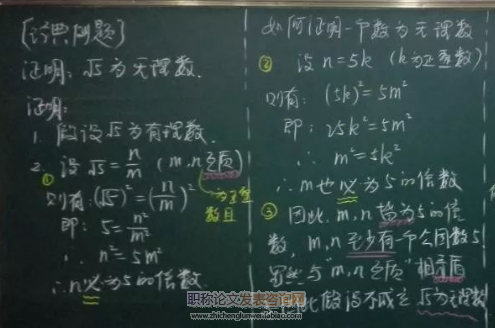 [经典例题]
证明：√5为无理数．
证明：
1. 假设√5为有理数．
2. 设√5=n/m（m,n互质）
为正整数且
① 则有：(√5)²=(n/m)²
即：5=n²/m²
∴ n²=5m²
∴n必为5的倍数
如何证明一个数为无理数
② 设n=5k（k为正整数）
则有：(5k)²=5m²
即：25k²=5m²
∴ m²=5k²
∴m也必为5的倍数
③ 因此，m,n皆为5的倍
数，m,n至少有一个公因数5，
与“m,n互质”相矛盾
因此假设不成立 √5为无理数
职称论文发表咨询网
www.zhichenglunwenfabiao.com